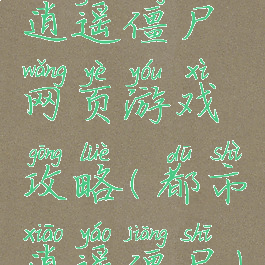 逍遥僵尸
wǎng yè yóu xì
网页游戏
gōng lüè dū shì
攻略(都市
xiāo yáo jiāng shī
逍遥僵尸)